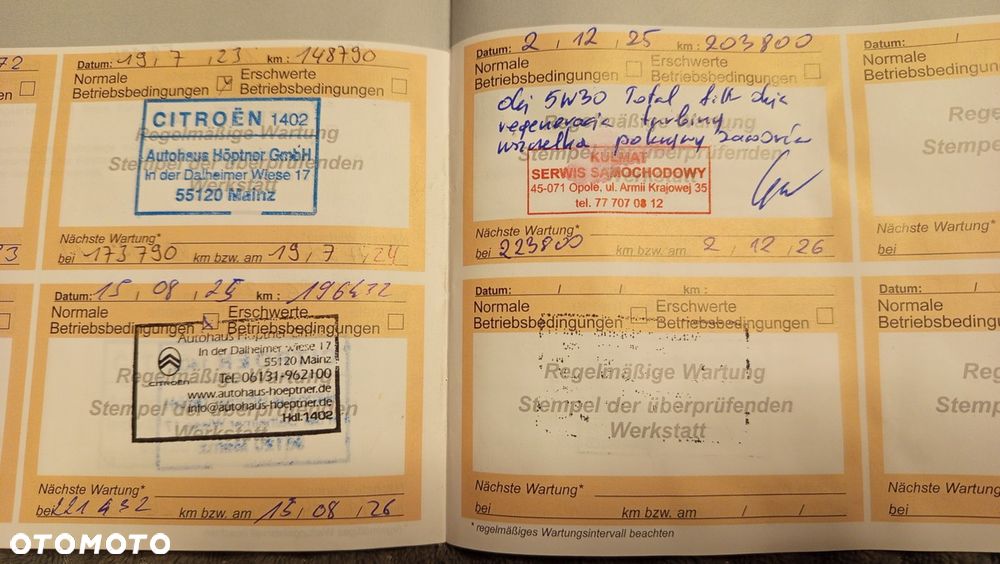 72
Datum: 19 , 7 , 23 km : 148790
Normale Betriebsbedingungen
Erschwerte Betriebsbedingungen
Regelmäßige Wartung
Stempel der überprüfenden
Werkstatt
CITROËN 1402
Autohaus Höptner GmbH
In der Dalheimer Wiese 17
55120 Mainz
Nächste Wartung*
bei 173790 km bzw. am 19 , 7 , 24
Datum: 15 , 08 , km : 196432
Normale Betriebsbedingungen
Erschwerte Betriebsbedingungen
Regelmäßige Wartung
Stempel der überprüfenden
Werkstatt
Autohaus Höptner GmbH
In der Dalheimer Wiese 17
55120 Mainz
CITROËN
Tel. 06131-962100
www.autohaus-hoeptner.de
info@autohaus-hoeptner.de
Hdl.1402
Nächste Wartung*
bei 221432 km bzw. am 15 , 08 , 26
Datum: 2 , 12 , 25 km : 203800
Normale Betriebsbedingungen
Erschwerte Betriebsbedingungen
olej 5W30 Total filtr oleju
regeneracja turbiny
uszczelka pokrywy zaworów
KULMAT
SERWIS SAMOCHODOWY
45-071 Opole, ul. Armii Krajowej 35
tel. 77 707 08 12
Nächste Wartung*
bei 223800 km bzw. am 2 , 12 , 26
Datum: / / km :
Normale Betriebsbedingungen
Erschwerte Betriebsbedingungen
Regelmäßige Wartung
Stempel der überprüfenden
Werkstatt
Nächste Wartung*
bei km bzw. am / /
* regelmäßiges Wartungsintervall beachten
Datum: /
Normale
Betriebsbedingungen
Nächste Wartung*
bei
Datum: /
Normale
Nächste Wartung*
bei
OTOMOTO